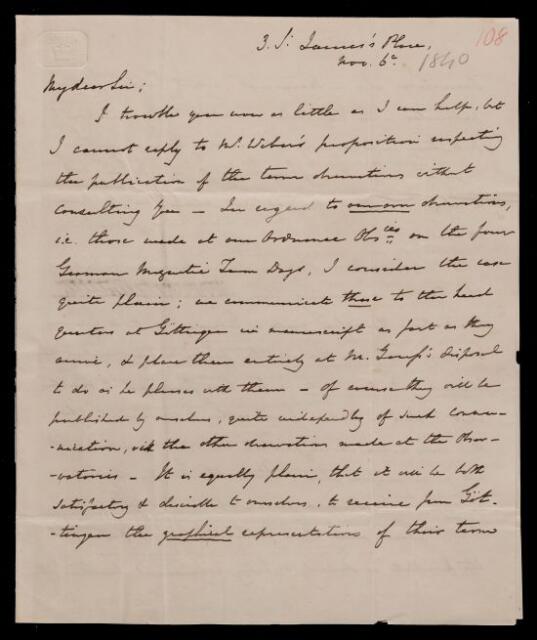 108
3. St James's Place,
Nov. 6th 1840
My dear Sir;
I trouble you now as little as I can help, but
I cannot reply to Mr. Weber's proposition respecting
the publication of the term observations without
consulting you – In regard to our own observations,
i.e. those made at our Ordnance Obsies on the four
German Magnetic Term Days, I consider the case
quite plain; we communicate those to the head
quarters at Göttingen in manuscript as fast as they
arrive, & place them entirely at M. Gauss's disposal
to do as he pleases with them – Of course they will be
published by ourselves, quite independly of such commu-
-nication, with the other observations made at the Obser-
-vatories – It is equally plain, that it will be both
satisfactory & desirable to ourselves, to receive from Göt-
-tingen the graphical representations of their term